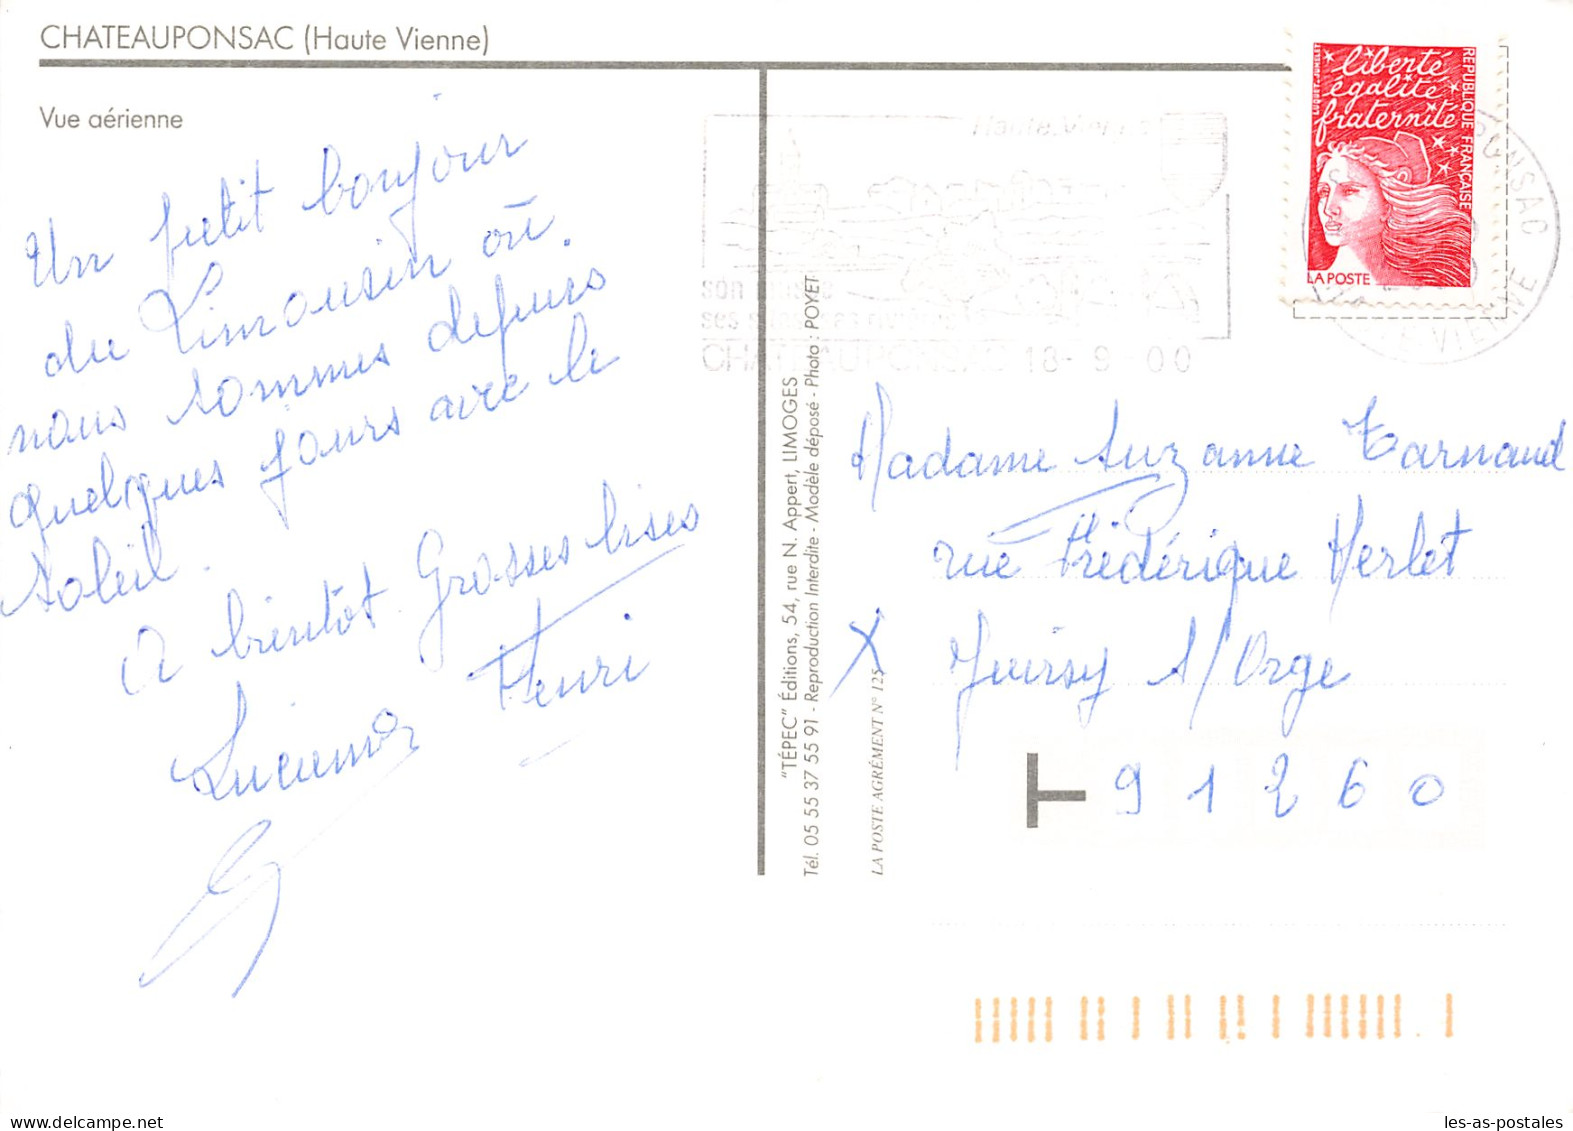 CHATEAUPONSAC (Haute Vienne)
Vue aérienne
Un petit bonjour
du Limousin où
nous sommes depuis
quelques jours avec le
soleil.
A bientot. Grosses bises
Henri
"TÉPEC" Éditions, 54, rue N. Appert, LIMOGES
Tél. 05 55 37 55 91 - Reproduction Interdite - Modèle déposé - Photo : POYET
LA POSTE AGRÉMENT N° 125
son
ses
CHATEAUPONSAC 18-9-00
liberté
égalité
fraternité
REPUBLIQUE FRANÇAISE
LUQUET-JUMELET
LA POSTE
PONSAC
VIENNE
Madame Suzanne Tarnaud
rue Frédérique Herlet
Juvisy s/Orge
T 91260
les-as-postales